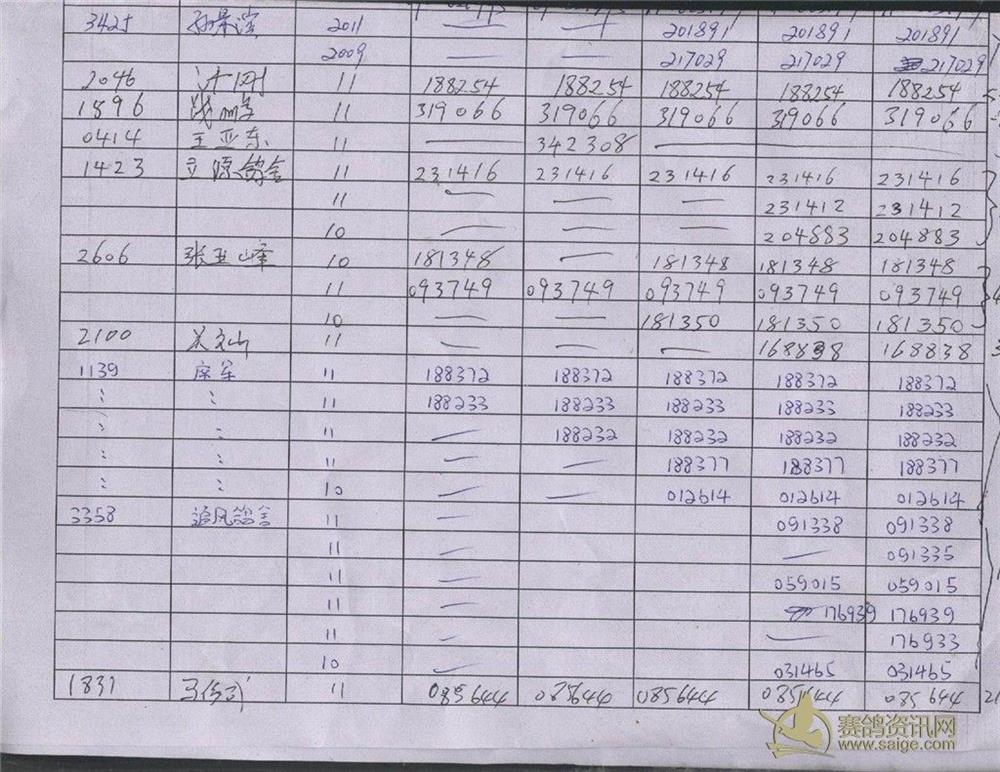 3425 孙景滨 2011 — — 201891 201891 201891
2009 217029 217029 217029
2046 计刚 11 188254 188254 188254 188254 188254
1896 11 319066 319066 319066 319066 319066
0414 王亚东 11 — 342308 — — —
1423 立源鸽舍 11 231416 231416 231416 231416 231416
11 — — — 231412 231412
10 — — — 204883 204883
2606 张亚峰 10 181348 — 181348 181348 181348
11 093749 093749 093749 093749 093749
10 — — 181350 181350 181350
2100 关文山 11 — — — 168838 168838
1139 11 188372 188372 188372 188372 188372
: : 11 188233 188233 188233 188233 188233
: : 11 — 188232 188232 188232 188232
: : 11 — — 188377 188377 188377
: : 10 — — 012614 012614 012614
3358 追风鸽舍 11 — 091338 091338
11 — — 091335
11 — 059015 059015
11 — 176939 176939
11 — — 176933
10 — 031465 031465
1831 11 085644 085644 085644 085644 085644
赛鸽资讯网
www.saige.com